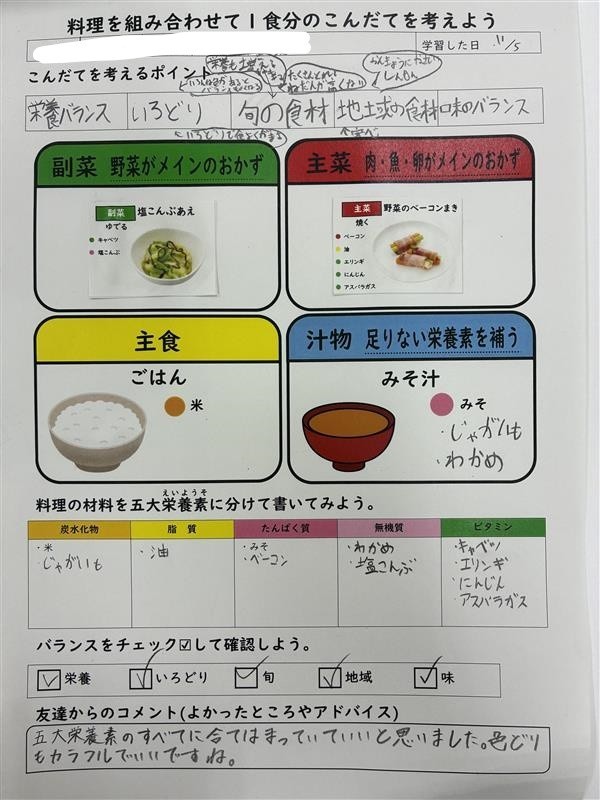 料理を組み合わせて1食分のこんだてを考えよう
学習した日 11/5
こんだてを考えるポイント
栄養バランス いろどり 旬の食材 地域の食材 味のバランス
副菜 野菜がメインのおかず
副菜 塩こんぶあえ
ゆでる
キャベツ
塩こんぶ
主菜 肉・魚・卵がメインのおかず
主菜 野菜のベーコンまき
焼く
ベーコン
油
エリンギ
にんじん
アスパラガス
主食
ごはん
米
汁物 足りない栄養素を補う
みそ汁
みそ
・じゃがいも
・わかめ
えいようそ
料理の材料を五大栄養素に分けて書いてみよう。
炭水化物 脂質 たんぱく質 無機質 ビタミン
・米 ・油 ・みそ ・わかめ ・キャベツ
・じゃがいも ・ベーコン ・塩こんぶ ・エリンギ
・にんじん
・アスパラガス
バランスをチェック☑して確認しよう。
☑栄養 ☑いろどり ☑旬 ☑地域 ☑味
友達からのコメント(よかったところやアドバイス)
五大栄養素のすべてに合てはまっていていいと思いました。色どり
もカラフルでいいですね。